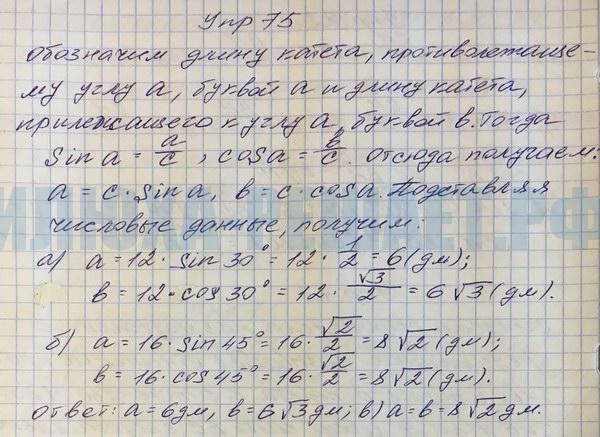 Упр 75
обозначим длину катета, противолежаще-
му углу a, буквой a и длину катета,
прилежащего к углу a, буквой в. Тогда
sin a = a/c, cos a = в/c. отсюда получаем:
a = c · sin a, в = c · cos a. Подставляя
числовые данные, получим:
а) a = 12 · sin 30° = 12 · 1/2 = 6 (дм);
в = 12 · cos 30° = 12 · √3/2 = 6√3 (дм).
б) a = 16 · sin 45° = 16 · √2/2 = 8√2 (дм);
в = 16 · cos 45° = 16 · √2/2 = 8√2 (дм).
ответ: a = 6дм, в = 6√3 дм; в) a = в = 8√2 дм.